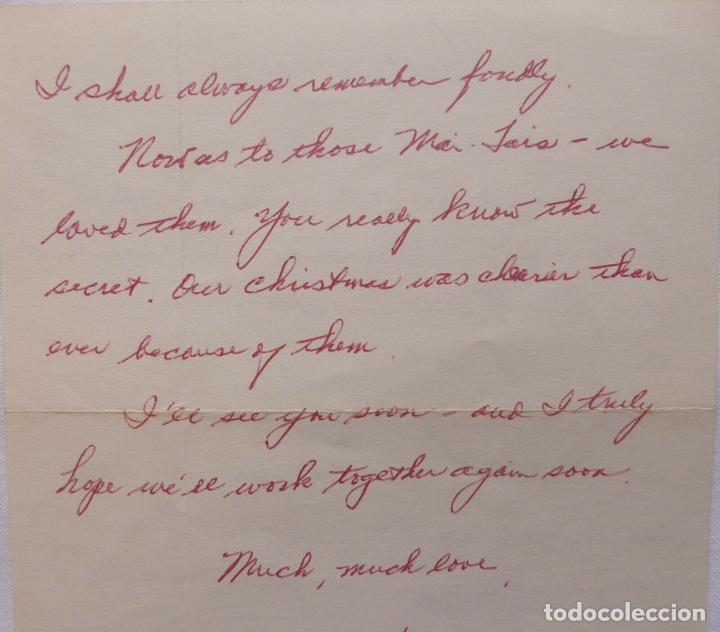 I shall always remember fondly.
Now as to those Mai-Tais - we
loved them. You really know the
secret. Our Christmas was cheerier than
ever because of them.
I'll see you soon - and I truly
hope we'll work together again soon.
Much, much love,
todocoleccion